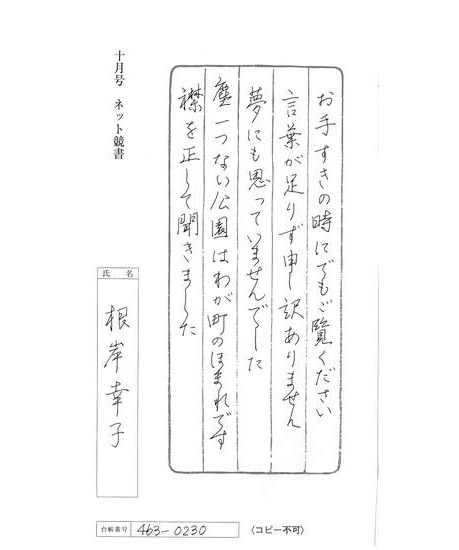 お手すきの時にでもご覧ください
言葉が足りず申し訳ありません
夢にも思っていませんでした
塵一つない公園はわが町のほまれです
襟を正して聞きました
十月号 ネット競書
氏名
根岸幸子
台帳番号 463-0230
〈コピー不可〉